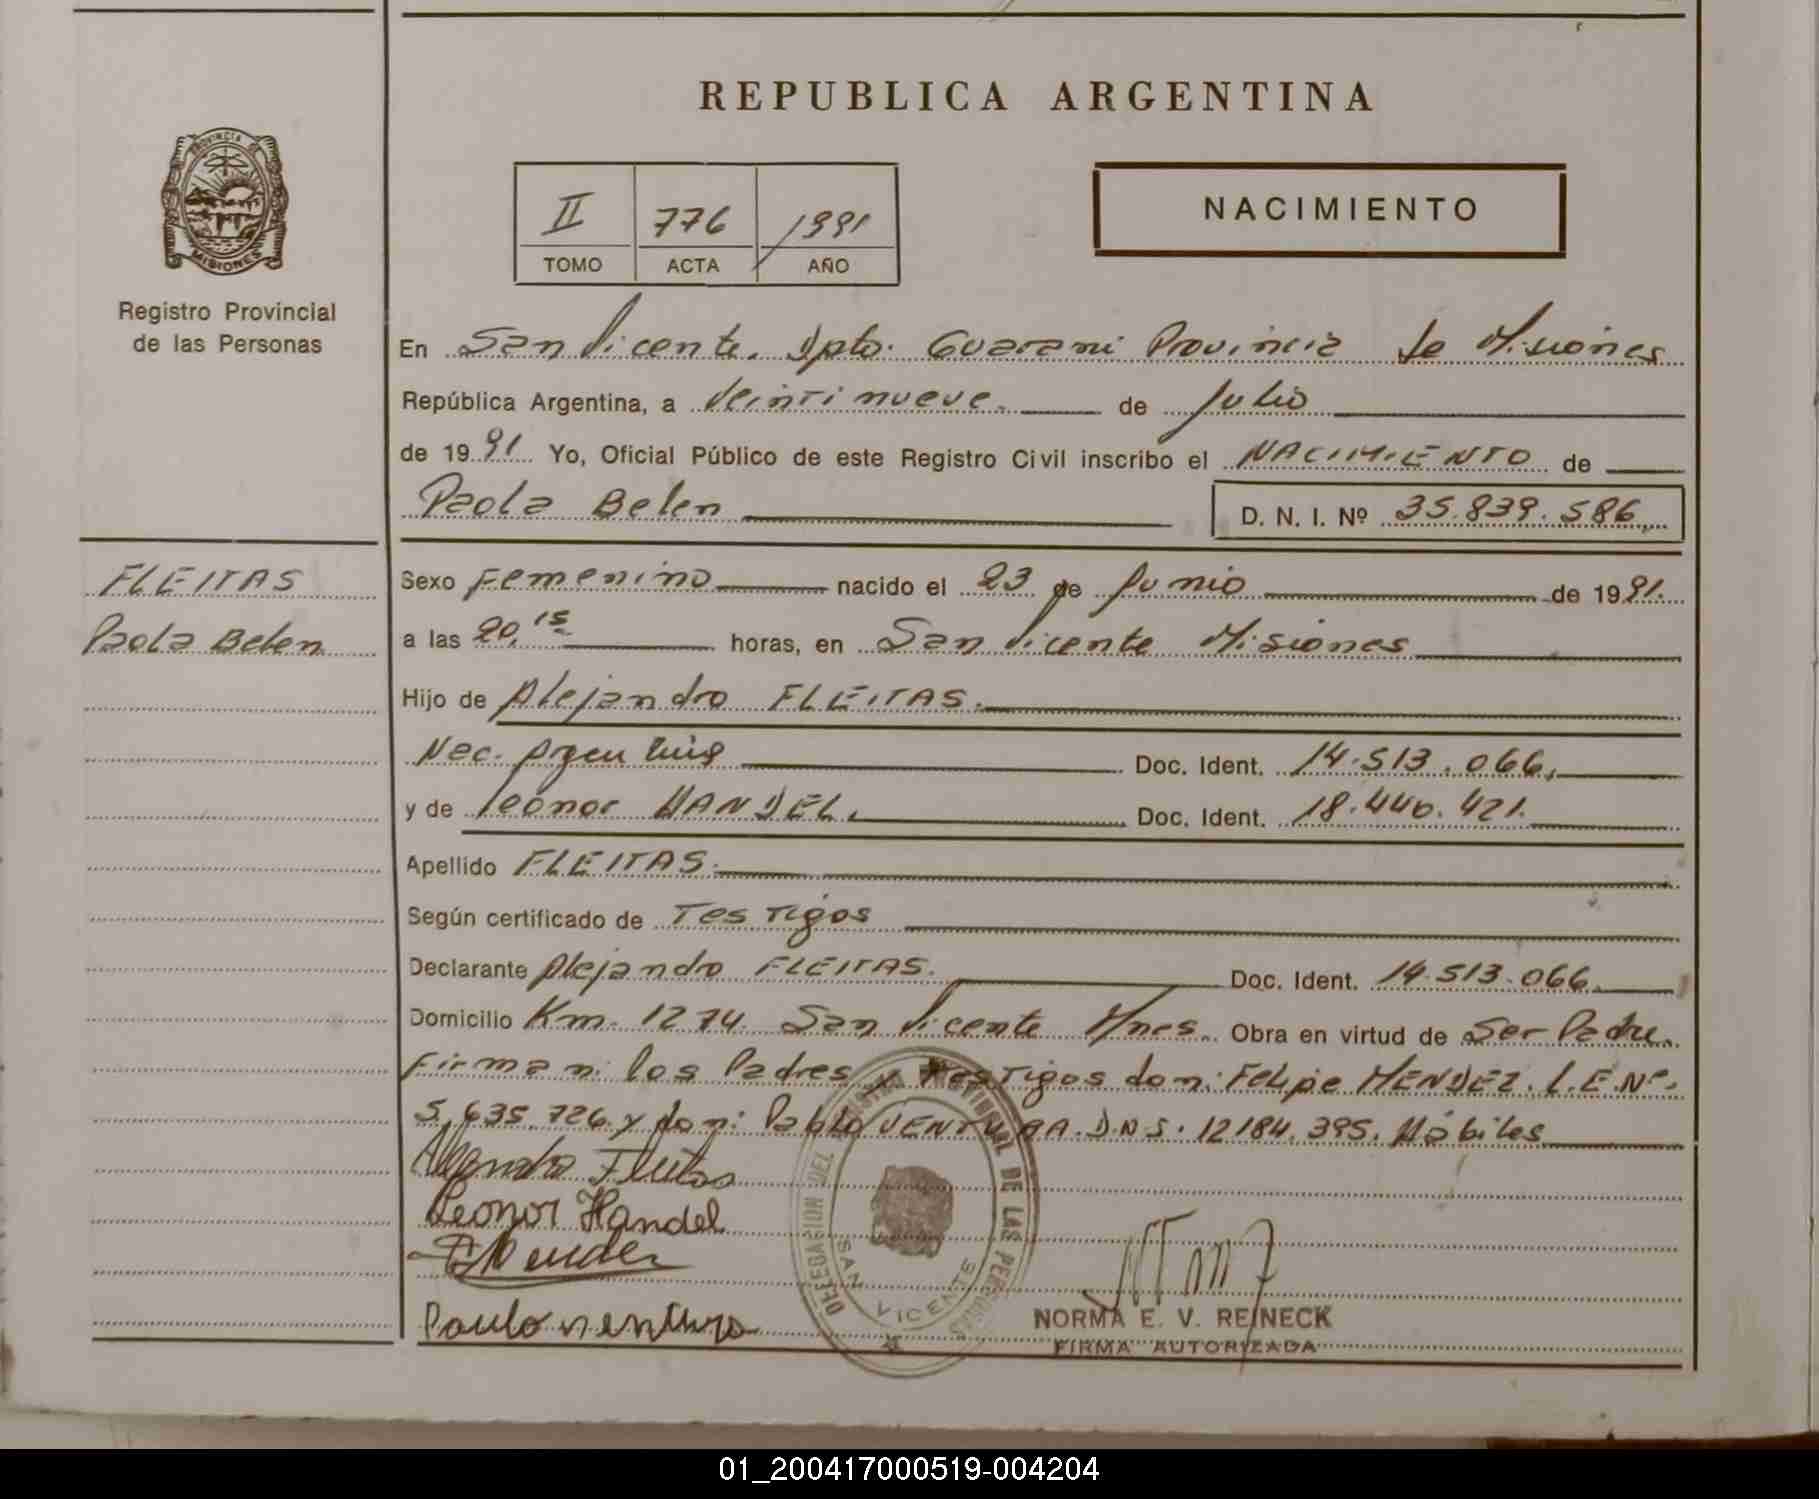 REPUBLICA ARGENTINA
PROVINCIA DE
MISIONES
Registro Provincial
de las Personas
II 776 1991
TOMO ACTA AÑO
NACIMIENTO
En San Vicente. Dpto. Guarani Provincia de Misiones
República Argentina, a Veintinueve. de Julio
de 1991 Yo, Oficial Público de este Registro Civil inscribo el NACIMIENTO de
Paola Belen D. N. I. Nº 35.839.586
FLEITAS
Paola Belen
Sexo Femenino nacido el 23 de Junio de 1991.
a las 20,15 horas, en San Vicente Misiones
Hijo de Alejandro FLEITAS.
Nac. Argentina Doc. Ident. 14.513.066,
y de Leonor HANDEL. Doc. Ident. 18.440.421.
Apellido FLEITAS.
Según certificado de Testigos
Declarante Alejandro FLEITAS. Doc. Ident. 14.513.066.
Domicilio Km. 1274 San Vicente Mnes. Obra en virtud de Ser Padre.
Firman: los Padres y Testigos don: Felipe MENDEZ. L.E.Nº.
5.635.726 y don: Pablo VENTURA. D.N.I. 12184.395. Hábiles
Alejandro Fleitas
Leonor Handel
Mendez
Paulo ventura
DELEGACION DEL REGISTRO PROVINCIAL DE LAS PERSONAS
SAN VICENTE
NORMA E. V. REINECK
FIRMA AUTORIZADA
01_200417000519-004204